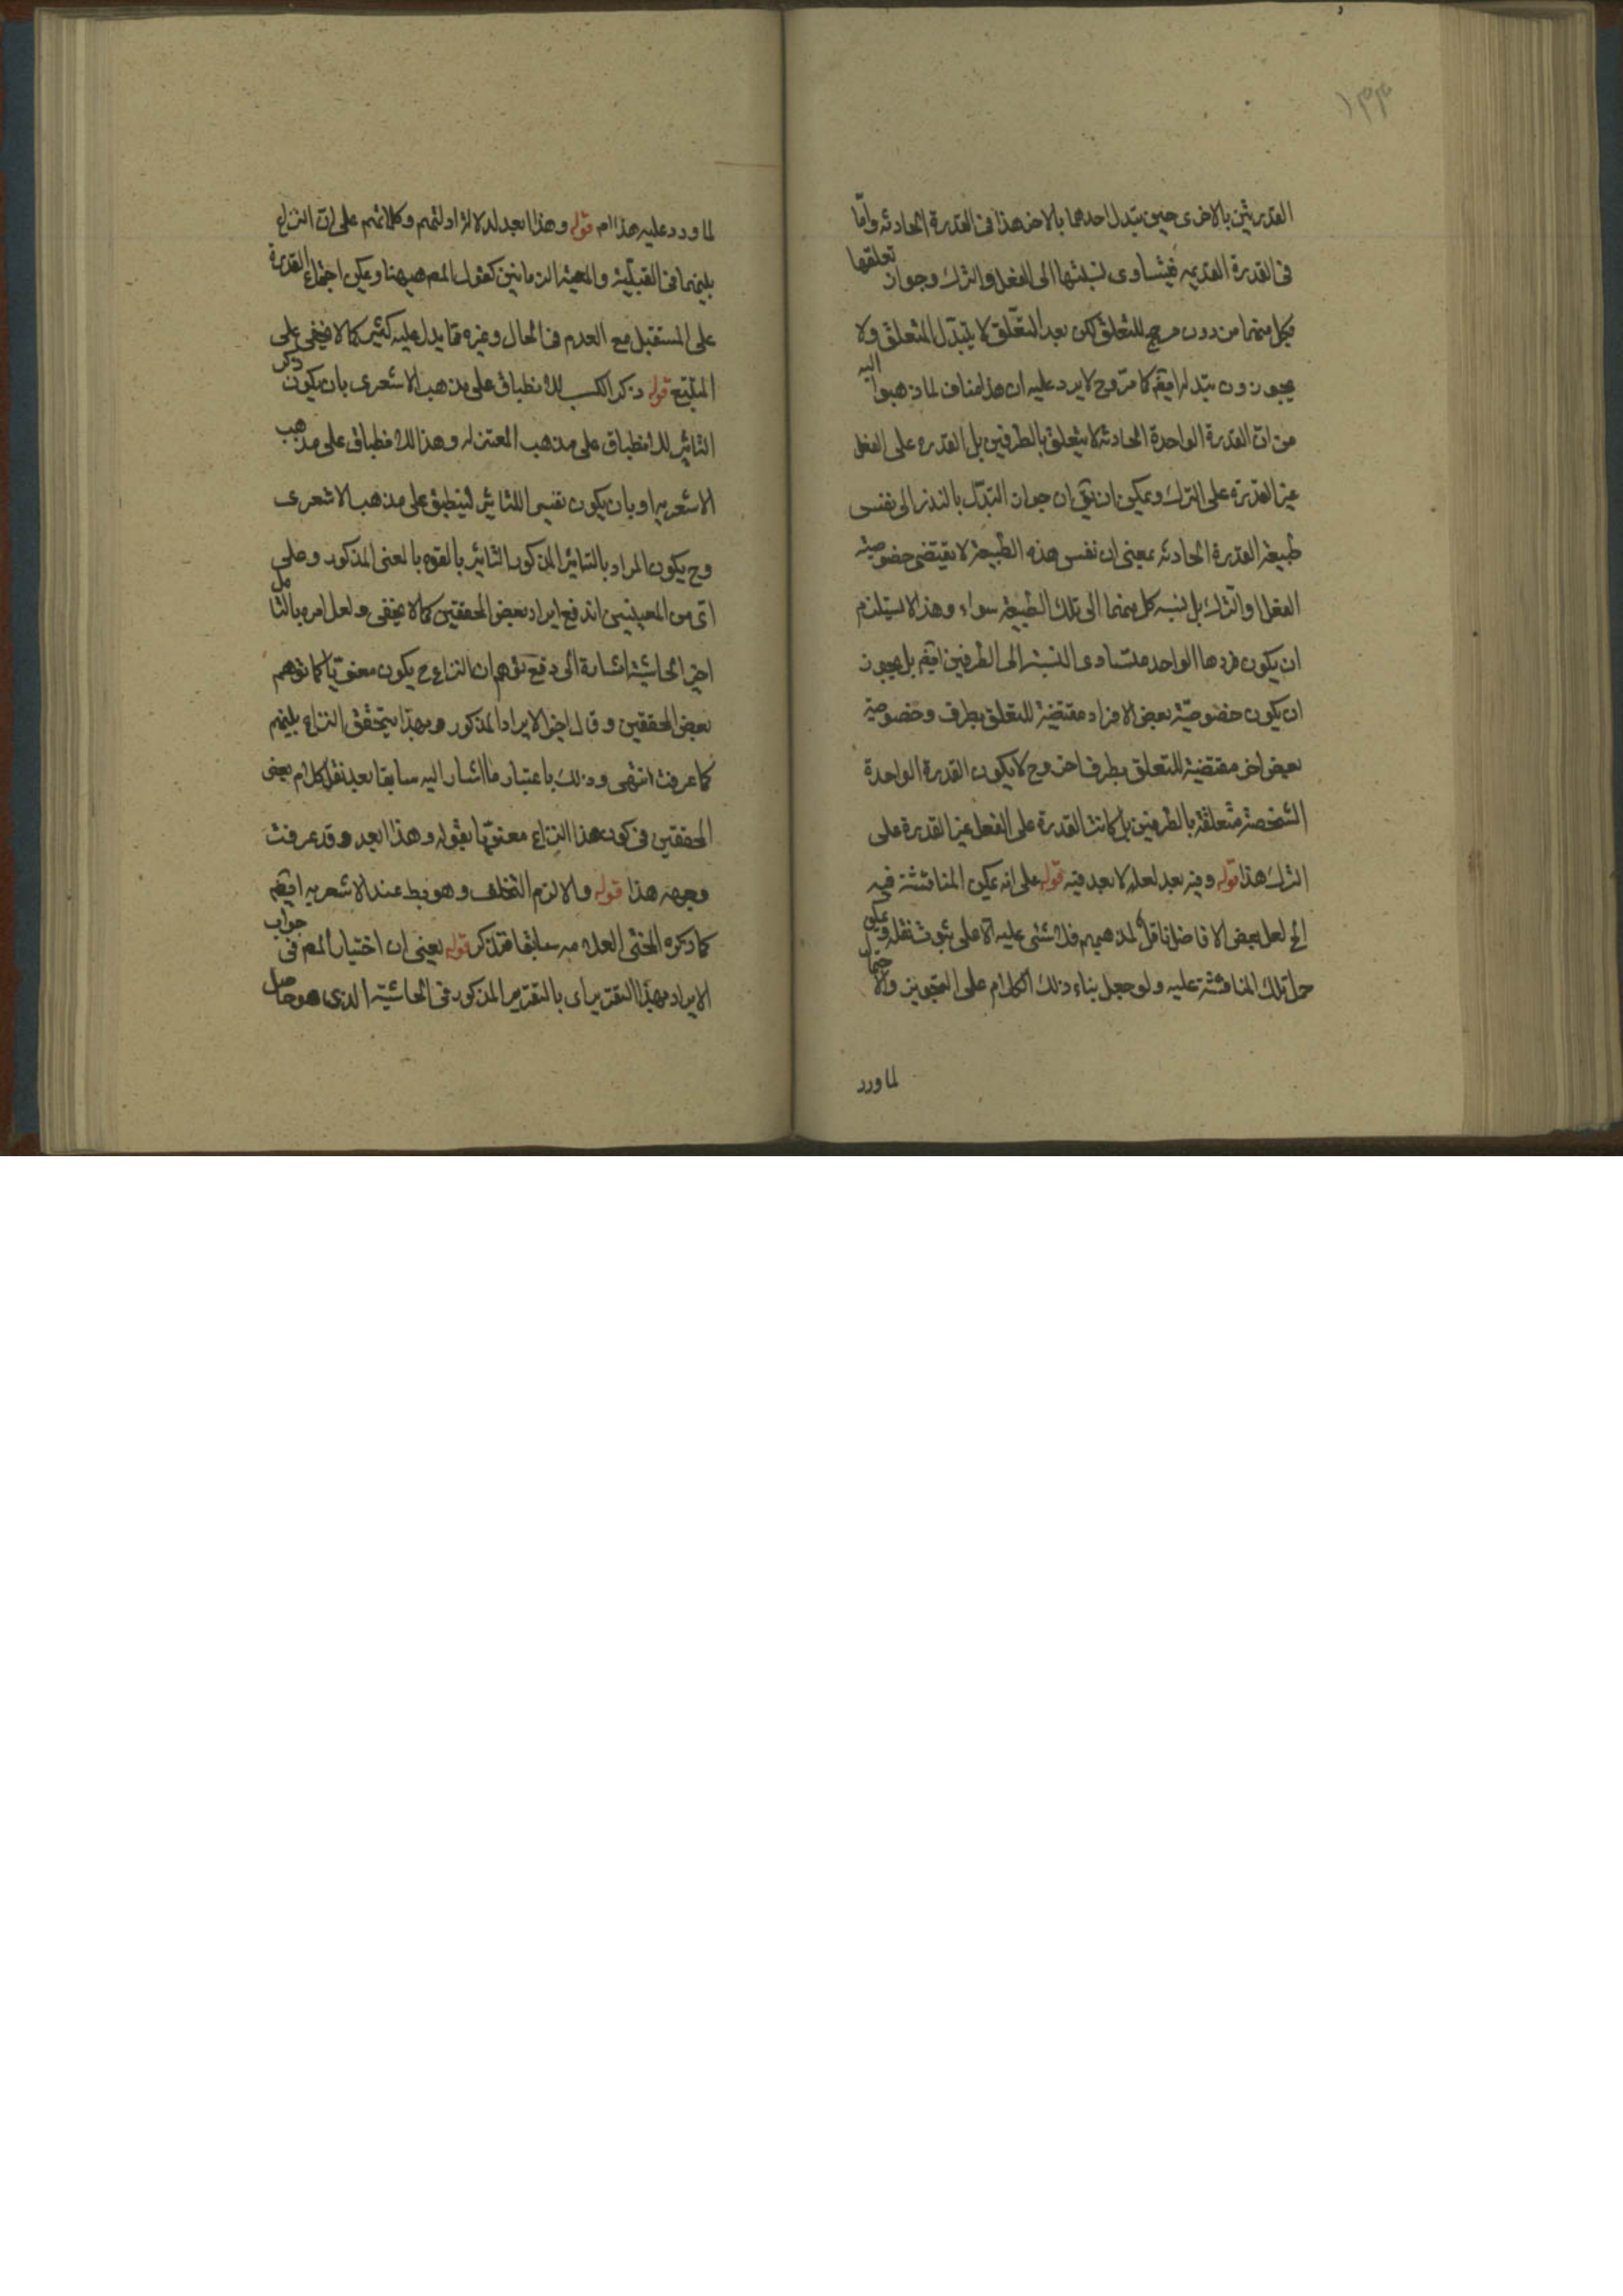 القدرتين بالاخرى حين يتبدل احدهما بالاخر هذا فى القدرة الحادثه واما
فى القدرة القديمه فيتساوى نسبتها الى الفعل والترك وجواز تعلقها
بكل منهما من دون مرجح للتعلق لكن بعد التعلق لا يتبدل المتعلق ولا
يجوزون تبدله ايضم كما مر وح لا يرد عليه ان هذا مناف لما ذهبوا اليه
من ان القدرة الواحدة الحادثه لا يتعلق بالطرفين بل القدره على الفعل
غير القدرة على الترك ويمكن ان يق ان جواز التبدل بالنذر الى نفس
طبيعة القدرة الحادثه بمعنى ان نفس هذه الطبيعة لا يقتضى خصوصية
الفعل او الترك بل نسبه كل منهما الى تلك الطبيعة سواء وهذا لا يستلزم
ان يكون فردها الواحد متساوى النسبة الى الطرفين ايضم بل يجوز
ان يكون خصوصية بعض الافراد مقتضية للتعلق بطرف وخصوصية
بعض اخر مقتضية للتعلق بطرف اخر وح لا يكون القدرة الواحدة
الشخصة متعلقة بالطرفين بل كانت القدرة على الفعل غير القدرة على
الترك هذا قوله وفيه بعد لعله لا بعد فيه قوله على انه يمكن المناقشة فيه
الخ لعل بعض الافاضل ناقل لمذهبهم فلا شئى عليه الا على ثبوت نقله ويمكن
حمل تلك المناقشة عليه ولو جعل بناء ذلك الكلام على التجويز والاحتمال
لما ورد
لما ورد عليه هذا ام قوله وهذا ابعد لدلالة ادلتهم وكلماتهم على ان النزاع
بينهما فى القبلية والمعية الزمانيين كقول المصم هيهنا ويمكن اجتماع القدرة
على المستقبل مع العدم فى الحال وغيره مما يدل عليه كثير كما لا يخفى على
المتتبع قوله ذكر الكسب للانطباق على مذهب الاشعرى بان يكون ذكر
التاثير للانطباق على مذهب المعتزله وهذا للانطباق على مذهب
الاشعريه او بان يكون تفسيرا للتاثير لينطبق على مذهب الاشعرى
وح يكون المراد بالتاثير المذكور التاثير بالقوه بالمعنى المذكور وعلى
اى من المعينيين اندفع ايراد بعض المحققين كما لا يخفى ولعل امره بالتامل
اخر الحاشية اشارة الى دفع توهم ان النزاع ح يكون معنويا كما توهم
بعض المحققين وقال اخر الايراد المذكور وبهذا يتحقق النزاع بينهم
كما عرفت انتهى وذلك باعتبار ما اشار اليه سابقا بعد نقل كلام بعض
المحققين فى كون هذا النزاع معنويا بقوله وهذا ابعد وقد عرفت
وجهه هذا قوله والا لزم التخلف وهو بط عند الاشعريه ايضم
كما ذكره المحشى العلامه سابقا فتذكر قوله يعنى ان اختيار المصم فى جواب
الايراد بهذا التقرير اى بالتقرير المذكور فى الحاشية الذى هو حاصل